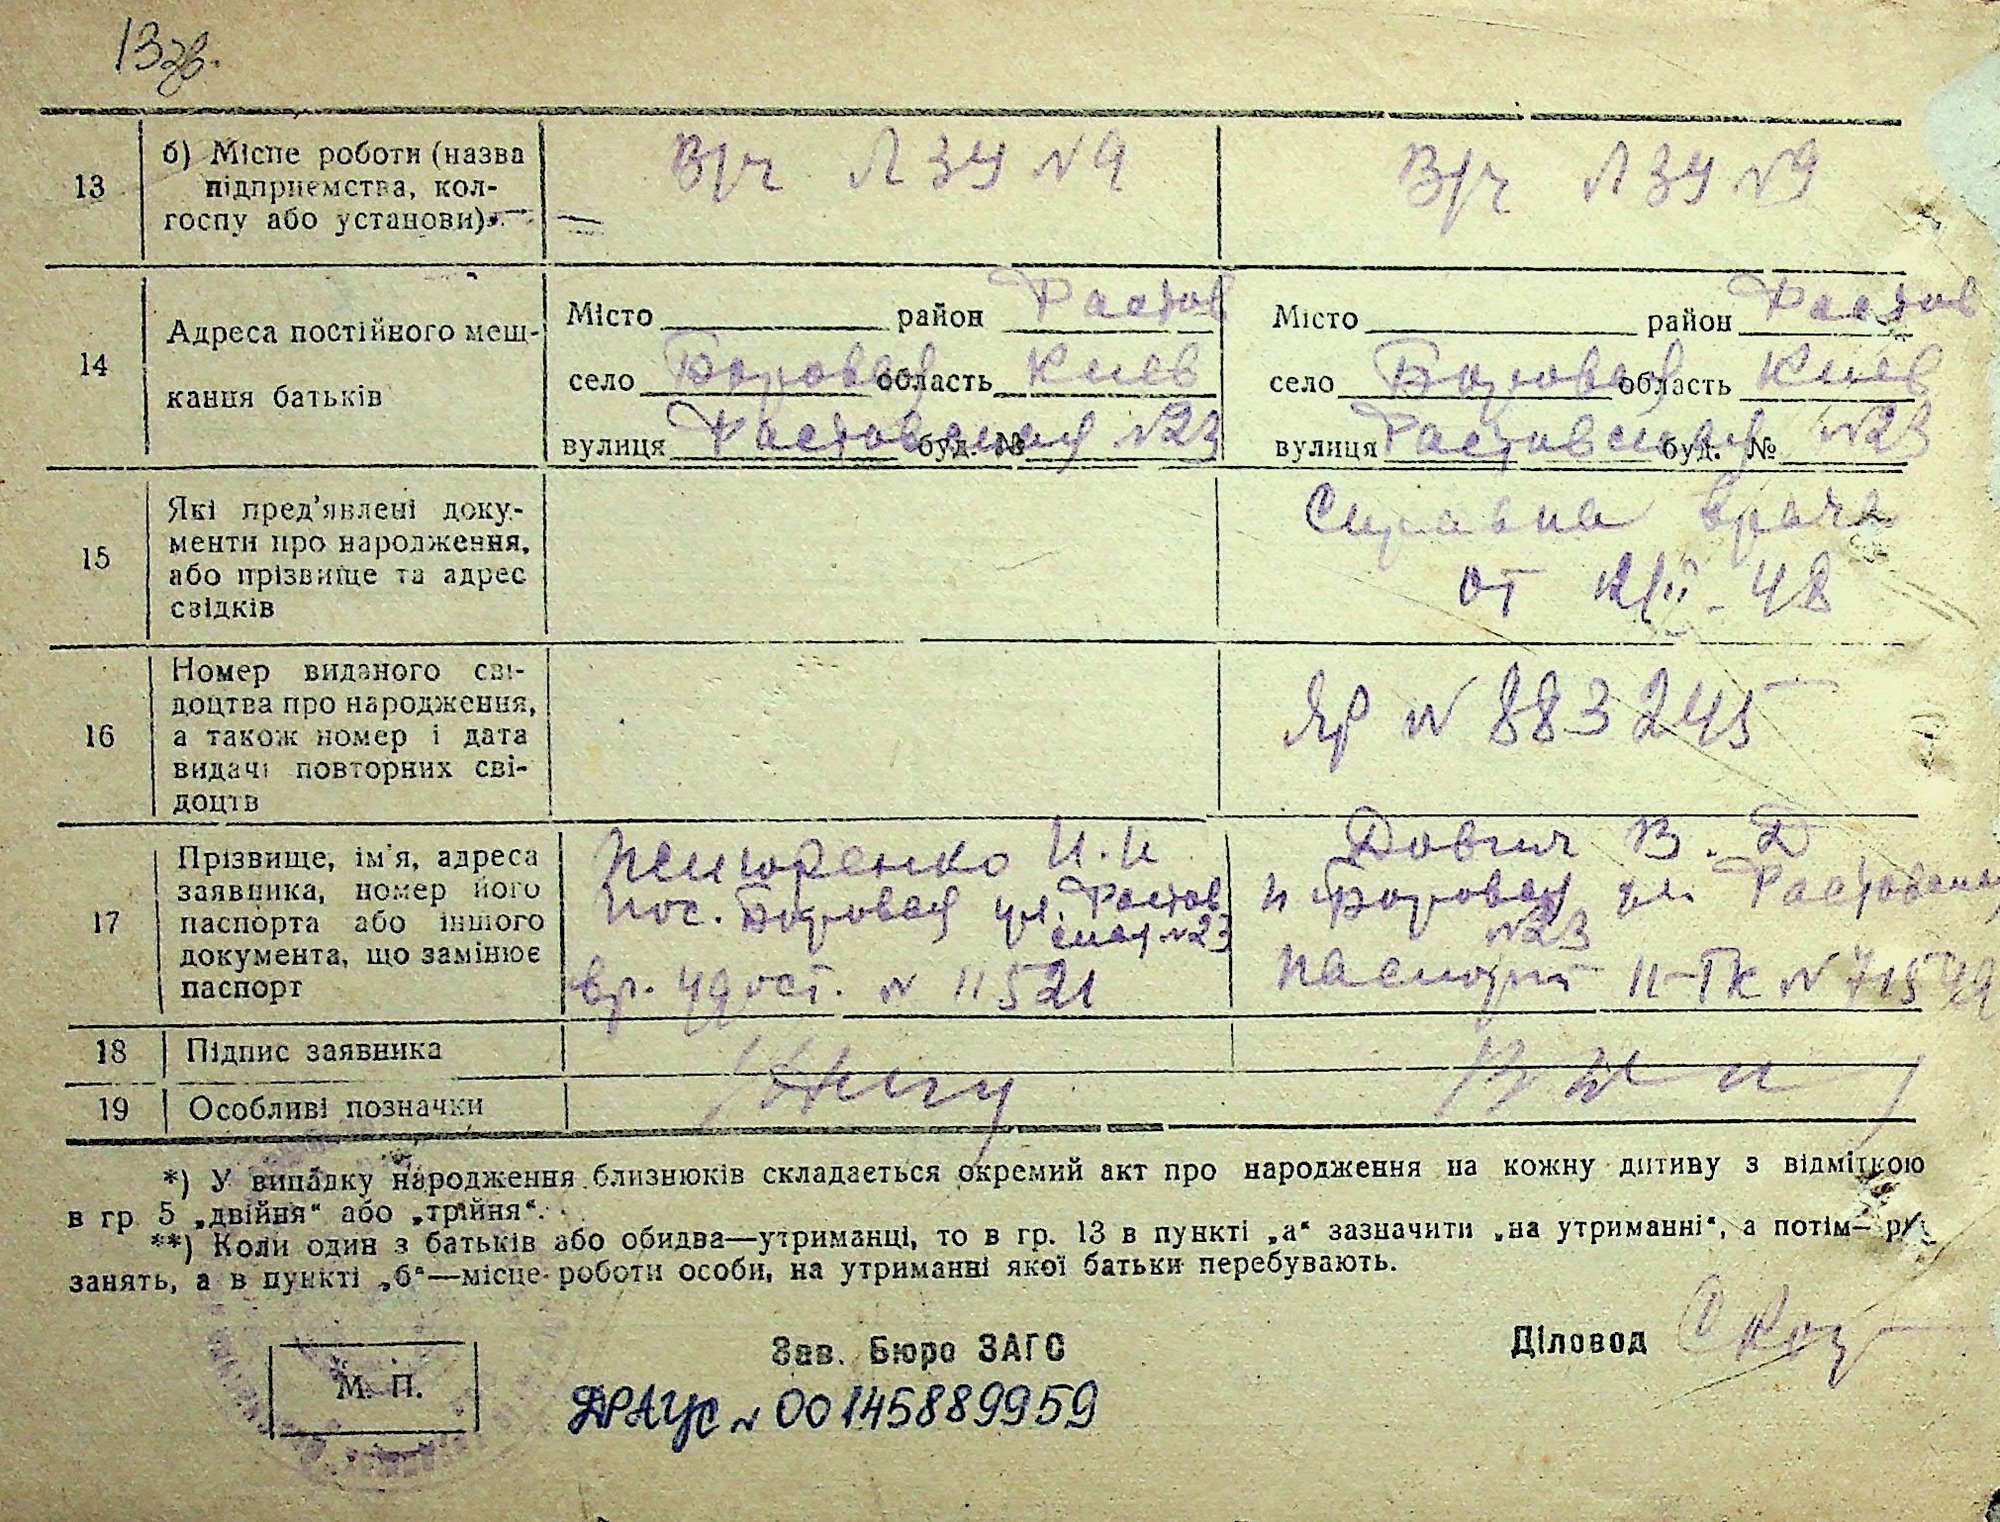 13зв.
13
б) Місце роботи (назва
підприємства, кол-
госпу або установи)
В/ч ЛЗУ №9
В/ч ЛЗУ №9
14
Адреса постійного меш-
кання батьків
Місто район Фастов
село Боровая область Киев
вулиця Фастовская буд. № №23
Місто район Фастов
село Боровая область Киев
вулиця Фастовская буд. № №23
15
Які пред'явлені доку-
менти про народження,
або прізвище та адрес
свідків
Справка врача
от II-48
16
Номер виданого сві-
доцтва про народження,
а також номер і дата
видачі повторних сві-
доцтв
№ 883245
17
Прізвище, ім'я, адреса
заявника, номер його
паспорта або іншого
документа, що замінює
паспорт
И. И
пос. Боровая ул. Фастов
ская №23
вр. удост. № 11521
Довгич В. Д
п Боровая ул. Фастовская
№23
паспорт II-ГК № 715
18
Підпис заявника
19
Особливі позначки
*) У випадку народження близнюків складається окремий акт про народження на кожну дитину з відміткою
в гр 5 „двійня“ або „трійня“.
**) Коли один з батьків або обидва—утриманці, то в гр. 13 в пункті „а“ зазначити „на утриманні“, а потім— рід
занять, а в пункті „б“—місце роботи особи, на утриманні якої батьки перебувають.
М. П.
Зав. Бюро ЗАГС
Діловод
ДРАЦС № 00145889959